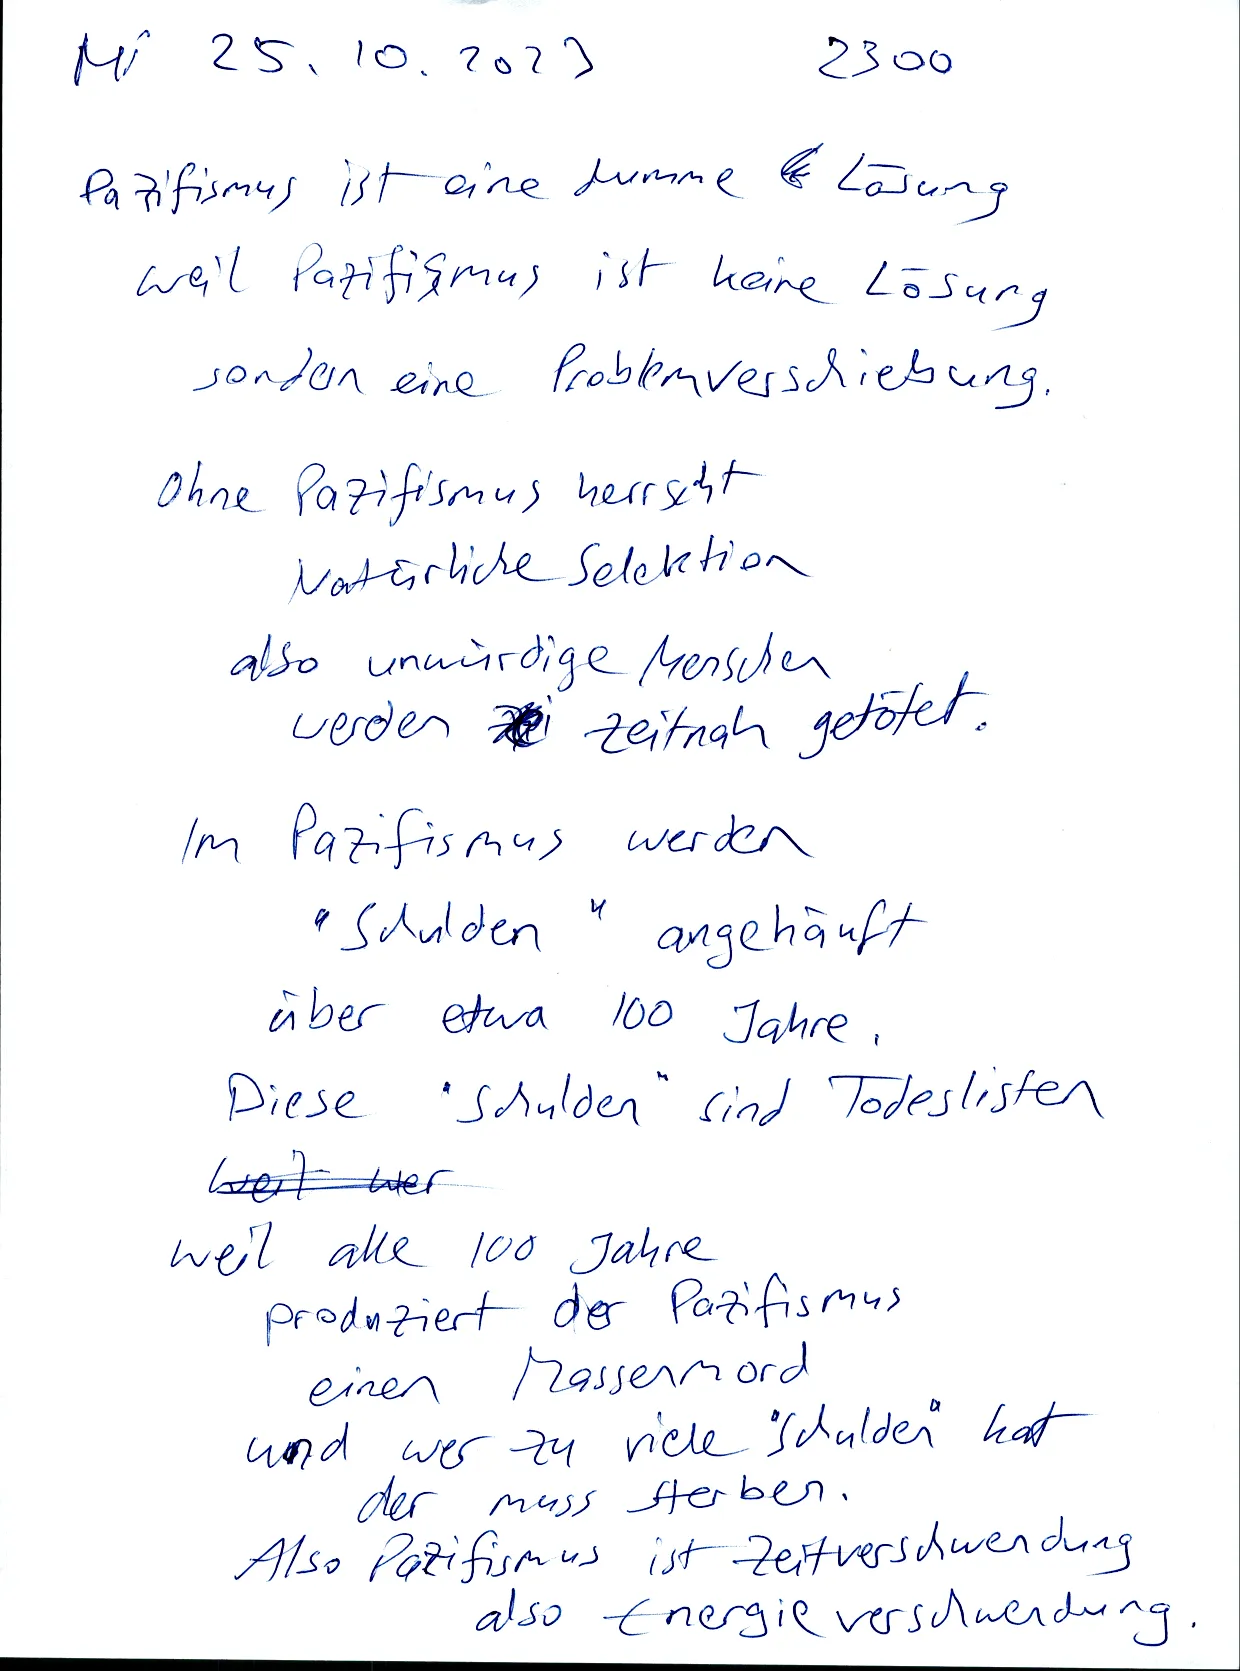 Mi 25.10.2023 2300
Pazifismus ist eine dumme Lösung
weil Pazifismus ist keine Lösung
sondern eine Problemverschiebung.
Ohne Pazifismus herrscht
Natürliche Selektion
also unwürdige Menschen
werden zeitnah getötet.
Im Pazifismus werden
"Schulden" angehäuft
über etwa 100 Jahre.
Diese "Schulden" sind Todeslisten
weil wer
weil alle 100 Jahre
produziert der Pazifismus
einen Massenmord
und wer zu viele "Schulden" hat
der muss sterben.
Also Pazifismus ist Zeitverschwendung
also Energieverschwendung.